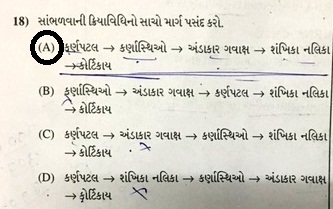 18) સાંભળવાની ક્રિયાવિધિનો સાચો માર્ગ પસંદ કરો.
(A) કર્ણપટલ → કર્ણાસ્થિઓ → અંડાકાર ગવાક્ષ → શંખિકા નલિકા
→ કોર્ટિકાય
(B) કર્ણાસ્થિઓ → અંડાકાર ગવાક્ષ → કર્ણપટલ → શંખિકા નલિકા
→ કોર્ટિકાય
(C) કર્ણપટલ → અંડાકાર ગવાક્ષ → કર્ણાસ્થિઓ → શંખિકા નલિકા
→ કોર્ટિકાય
(D) કર્ણપટલ → શંખિકા નલિકા → કર્ણાસ્થિઓ → અંડાકાર ગવાક્ષ
→ કોર્ટિકાય